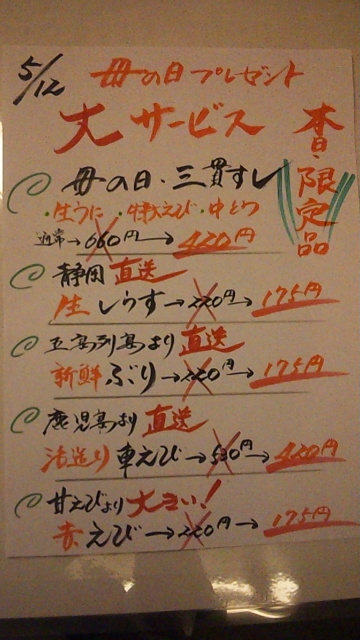 5/12
母の日プレゼント
大サービス
本日限定品
母の日・三貫すし
・生うに ・特大えび ・中とろ
通常→660円→420円
静岡直送
生しらす→220円→175円
五島列島より直送
新鮮ぶり→220円→175円
鹿児島より直送
活造り車えび→530円→420円
甘えびより大きい!
赤えび→220円→175円